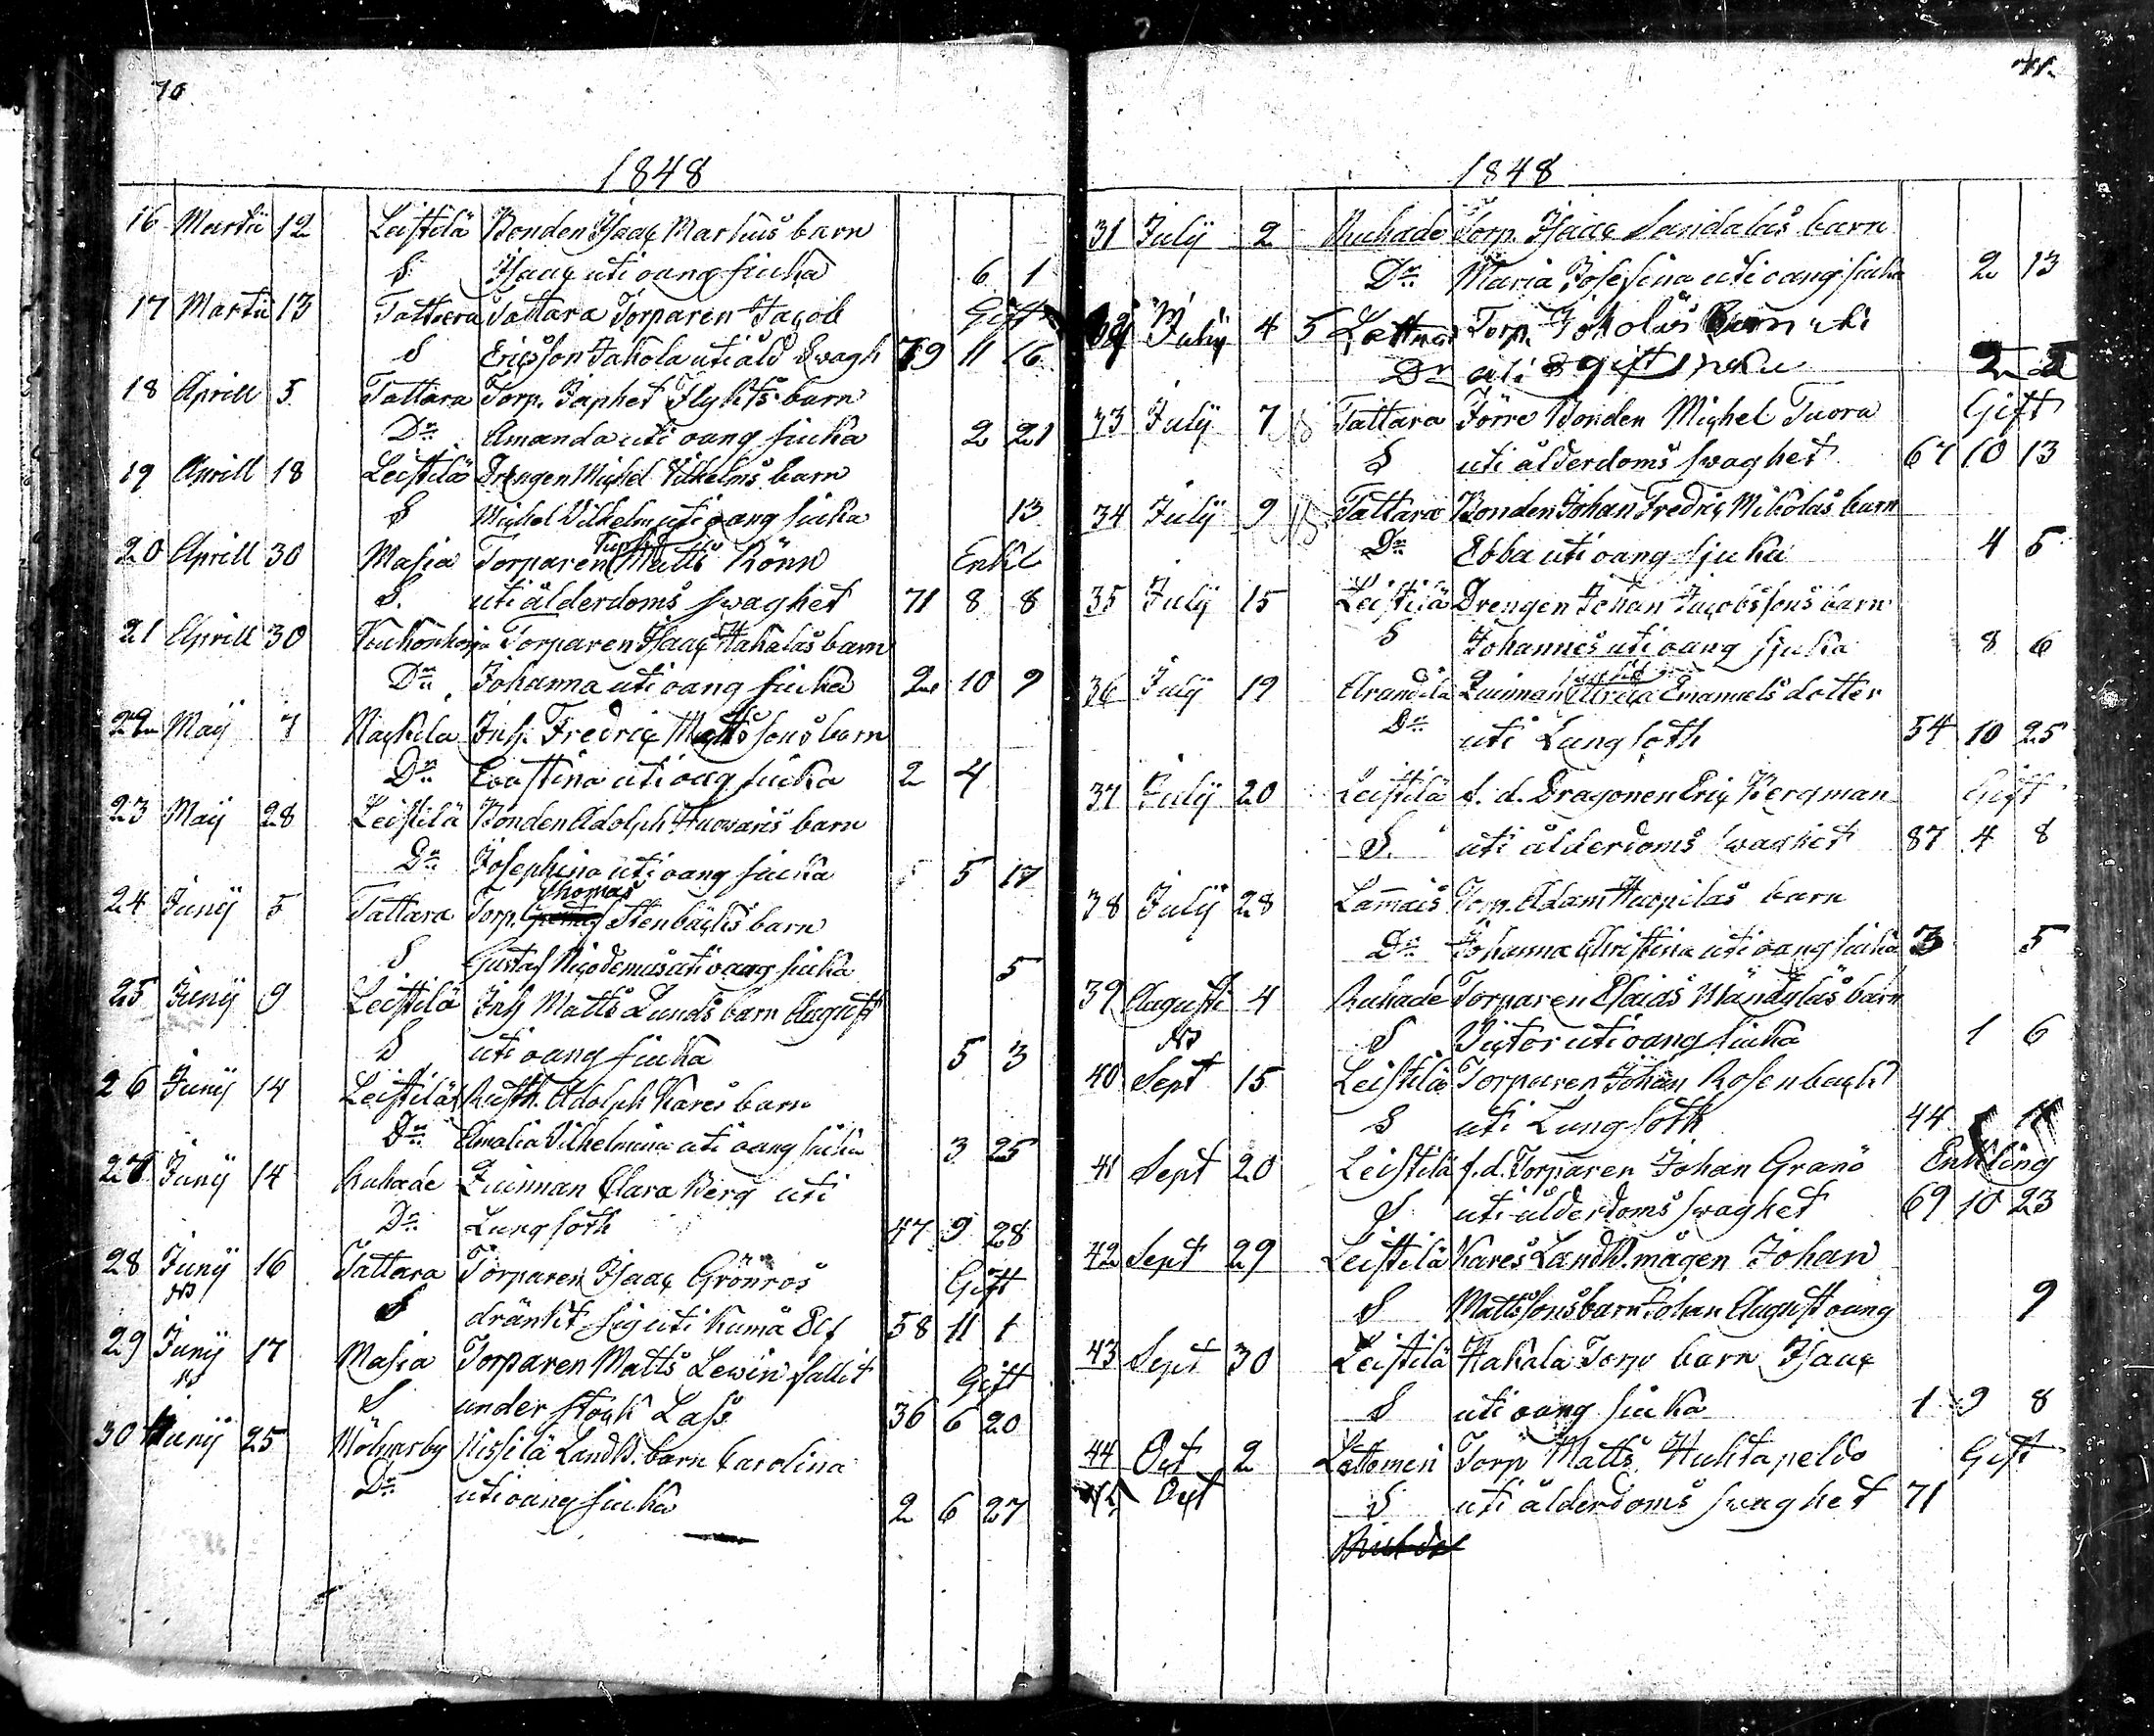 70
1848
16 Martii 12 Leistilä Bonden Isaaç Martins barn
S Isaaç uti oang siuka 6 1
17 Martii 13 Tattara Tattara Torparen Jaçob Gift
S Eriçsson Jakola uti åld Swagh 79 11 16
18 Aprill 5 Tattara Torp. Japhet Flykts barn
Dr. Amanda uti oang siuka 2 21
19 Aprill 18 Leistilä Drengen Miçhel Vilhelms barn
S Miçhel Vilhelm uti oang siuka 13
20 Aprill 30 Masia Torparen Matts Rönn Enkl
S. uti ålderdoms swaghet 71 8 8
21 Aprill 30 Torparen Isaaç Hakalas barn
Dr. Johanna uti oang siuka 2 10 9
22 Maij 7 Naçkila Inh. Fredriç Mattssons barn
Dr. Evastina uti oang siuka 2 4
23 Maij 28 Leistilä Bonden Adolph Huovaris barn
Dr. Josephina uti oang siuka 5 17
24 Junij 5 Tattara Torp. Thomas Stenbäçks barn
S Gustaf Niçodemus uti oang siuka 5
25 Junij 9 Leistilä Inh Matts Lunds barn August
S uti oang siuka 5 3
26 Junij 14 Leistilä Rusth. Adolph Kares barn
Dr. Amalia Vilhelmina uti oang siuka 3 25
27 Junij 14 Ruhade Quinnan Clara Berg uti
Dr. Lungsoth 47 9 28
28 Junij 16 Tattara Torparen Isaaç Grönroos Gift
S dränkt sig uti Kumå Elf 58 11 1
29 Junij 17 Masia Torparen Matts Lewin fallit Gift
S under stoçk Lass 36 6 20
30 Junij 25 Mölnarsby Nissilä Landb. barn Carolina
Dr. uti oang siuka 2 6 27
71
1848
31 Julij 2 Ruhade Torp. Isaaç Sandalas barn
Dr. Maria Josefina uti oang siuka 2 13
32 Julij 4 5 Torp. Barn
Dr uti
33 Julij 7 Tattara Förre Bonden Miçhel Tuora Gift
S uti ålderdoms swaghet 67 10 13
34 Julij 9 Tattara Bonden Johan Fredriç Mikolas barn
Dr. Ebba uti oang sjuka 4 5
35 Julij 15 Leistilä Drengen Johan Jaçobssons barn
S Johannes uti oang sjuka 8 6
36 Julij 19 Arandila Quinnan Emanuels dotter
Dr. uti Lungsoth 54 10 25
37 Julij 20 Leistilä f. d. Dragonen Eriç Bergman Gift
S. uti ålderdoms swaghet 87 4 8
38 Julij 28 Lamais Torp. Adam Huopilas barn
Dr. Johanna Christina uti oang siuka 3 5
39 Augusti 4 Ruhade Torparen Esaias Mändyläs barn
S Viçtor uti oang siuka 1 6
40 Sept 15 Leistilä Torparen Johan Rosenbaçk
S uti Lungsoth 44
41 Sept 20 Leistilä f.d. Torparen Johan Granö Enkling
S uti ålderdoms swaghet 69 10 23
42 Sept 29 Leistilä Kares Landb. mågen Johan
S Mattssons barn Johan August oang 9
43 Sept 30 Leistilä Hakala Torp barn Isaaç
S uti oang siuka 1 9 8
44 Oct 2 Lattomeri Torp Matts Huhtapeldo Gift
45 Oçt S uti ålderdoms swaghet 71